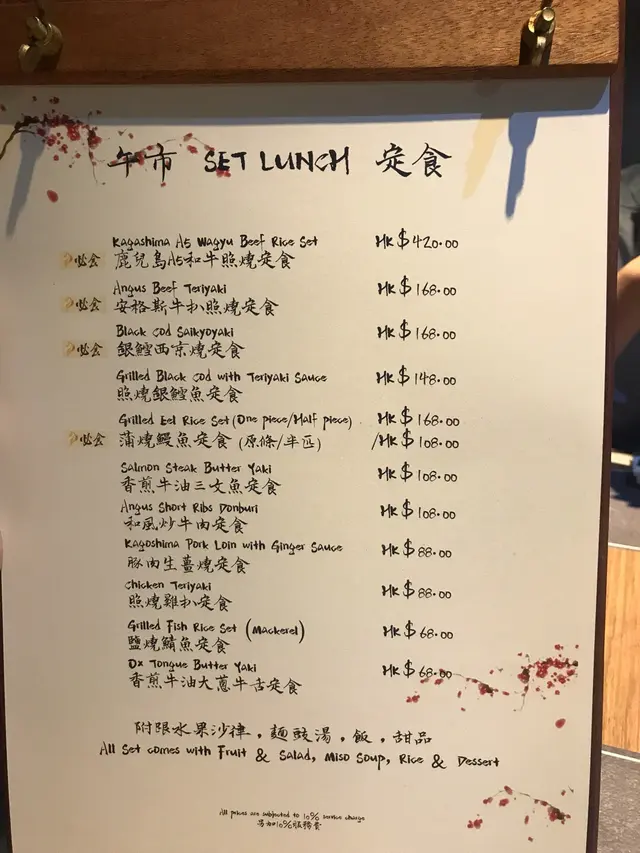 午市 SET LUNCH 定食
Kagashima A5 Wagyu Beef Rice Set HK$420.00
必食 鹿兒島A5和牛照燒定食
Angus Beef Teriyaki HK$168.00
必食 安格斯牛扒照燒定食
Black Cod Saikyoyaki HK$168.00
必食 銀鱈西京燒定食
Grilled Black Cod with Teriyaki Sauce HK$148.00
照燒銀鱈魚定食
Grilled Eel Rice Set (One piece/Half piece) HK$168.00
必食 蒲燒鰻魚定食 (原條/半匹) /HK$108.00
Salmon Steak Butter Yaki HK$108.00
香煎牛油三文魚定食
Angus Short Ribs Donburi HK$108.00
和風炒牛肉定食
Kagoshima Pork Loin with Ginger Sauce HK$88.00
豚肉生薑燒定食
Chicken Teriyaki HK$88.00
照燒雞扒定食
Grilled Fish Rice Set (Mackerel) HK$68.00
鹽燒鯖魚定食
Ox Tongue Butter Yaki HK$68.00
香煎牛油大蔥牛舌定食
附限水果沙律，麵豉湯，飯，甜品
All Set comes with Fruit & Salad, Miso Soup, Rice & Dessert
All prices are subjected to 10% service charge
另加10%服務費